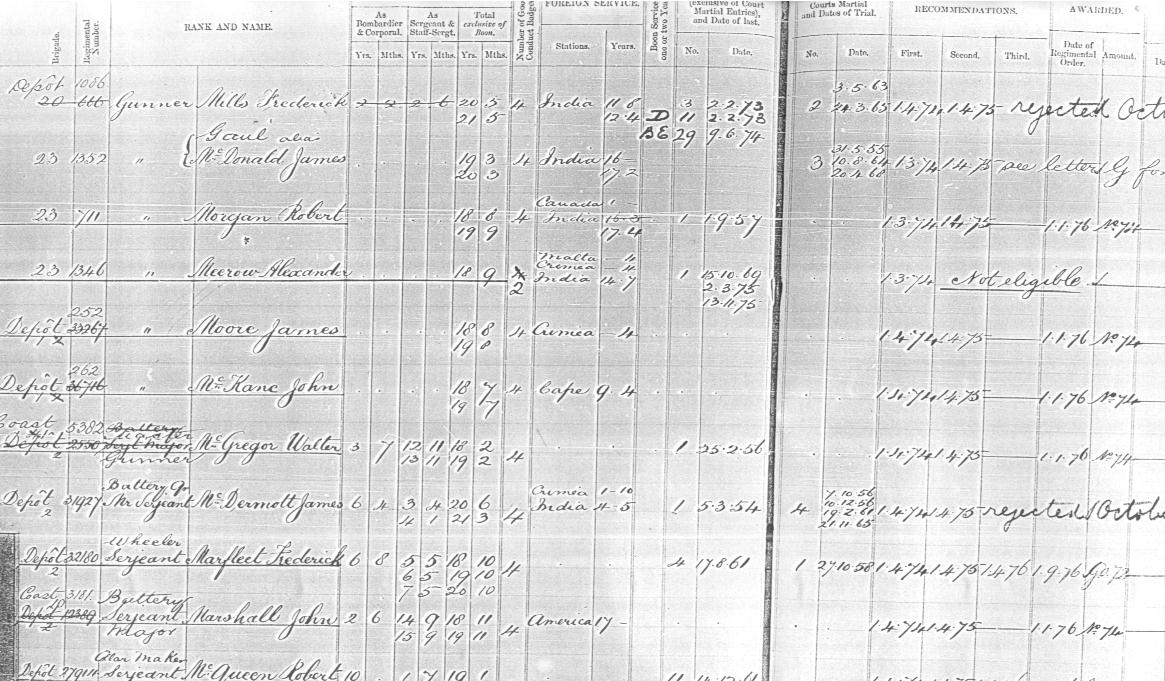 Brigade. Regimental Number. RANK AND NAME. As Bombardier & Corporal. As Sergeant & Staff-Sergt. Total exclusive of Boon. Number of Good Conduct Badges FOREIGN SERVICE. Boon Service one or two Years (exclusive of Court Martial Entries), and Date of last. Courts Martial and Dates of Trial. RECOMMENDATIONS. AWARDED.
Yrs. Mths. Yrs. Mths. Yrs. Mths. Stations. Years. No. Date. No. Date. First. Second. Third. Date of Regimental Order. Amount.
Depôt 1086 3.5.63
20 666 Gunner Mills Frederick 20 5 4 India 11 6 3 2.2.73 2 24.3.65 1.4.74 1.4.75 rejected Octo
21 5 12.4 D 11 2.2.73
Gaul alias BE 29 9.6.74
31.5.55
23 1352 " McDonald James 19 3 4 India 16 - 3 10.8.64 1.3.74 1.4.75 see letters G for
20 3 17.2 20.4.68
Canada 1 -
23 711 " Morgan Robert 18 8 4 India 16-3 1 1.9.57 1.3.74 1.4.75 1.1.76 No 74
19 9 17.4
Malta - 4
Crimea - 4
23 1346 " Meerow Alexander 18 9 India 14-7 1 15.10.69 1.3.74 Not eligible
2 2.3.75
13.11.75
252
Depôt 2 " Moore James 18 8 4 Crimea - 4 1.4.74 1.4.75 1.1.76 No 74
19 8
262
Depôt 2 36716 " McKane John 18 7 4 Cape 9.4 1.4.74 1.4.75 1.1.76 No 74
19 7
Coast 5382 Battery
Depôt 2 2550 Serjt Major McGregor Walter 3 7 12 11 18 2 1 25.2.56 1.4.74 1.4.75 1.1.76 No 74
Gunner 13 11 19 2 4
Battery Qr Crimea 1-10 7.10.56
10.12.56
Depôt 2 31927 Mr Serjeant McDermott James 6 4 3 4 20 6 India 4-5 1 5.3.54 4 19.2.61 1.4.74 1.4.75 rejected Octobe
4 1 21 3 4 21.11.65
Wheeler
Depôt 2 32180 Serjeant Marfleet Frederick 6 8 5 5 18 10 4 4 17.8.61 1 27.10.58 1.4.74 1.4.75 1.4.76 1.9.76
6 5 19 10
7 5 20 10
Coast 3181 Battery
Depôt 2 12389 Serjeant Marshall John 2 6 14 9 18 11 America 17 - 1.4.74 1.4.75 1.1.76 No 74
Major 15 9 19 11 4
Collar Maker
Depôt 27914 Serjeant McQueen Robert 10 . 1 7 19 1